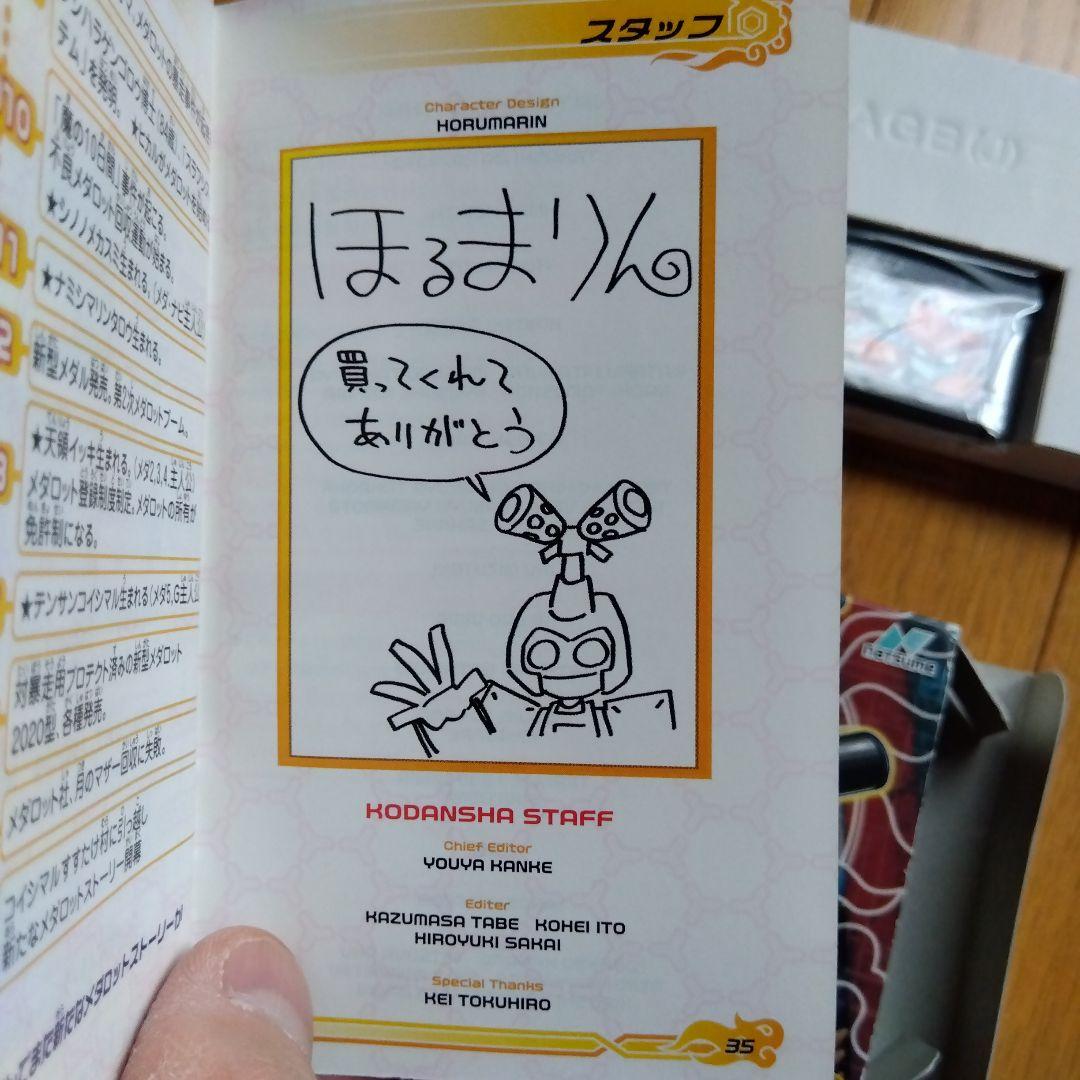 テム」を発明。
「魔の10日間」事件が起こる。
不良メダロット回収運動が始まる。
★シノノメカスミ生まれる。(メダ・ナビ主人公)
★ナミシマリンタロウ生まれる。
新型メダル発売。第2次メダロットブーム。
★天領イッキ生まれる。(メダ2,3,4.主人公)
メダロット登録制度制定。メダロットの所有が
免許制になる。
★テンサンコイシマル生まれる(メダ5,G主人公
対暴走用プロテクト済みの新型メダロット
2020型、各種発売。
メダロット社、月のマザー回収に失敗。
コイシマルすすたけ村に引っ越し
新たなメダロットストーリー開幕
スタッフ
Character Design
HORUMARIN
ほるまりん
買ってくれて
ありがとう
KODANSHA STAFF
Chief Editor
YOUYA KANKE
Editer
KAZUMASA TABE KOHEI ITO
HIROYUKI SAKAI
Special Thanks
KEI TOKUHIRO
35
AGB(J)
natsume